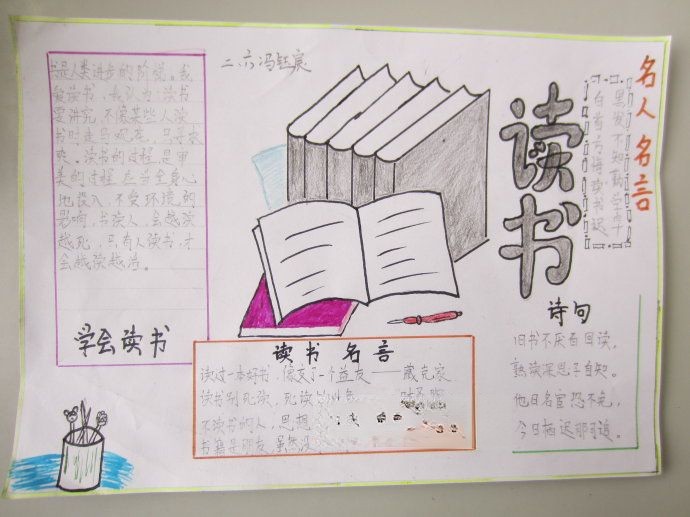 二.六冯钰宸
是人类进步的阶梯。我
爱读书，我认为：读书
要讲究，不像某些人读
书时走马观花，只寻欢
。读书的过程，是审
美的过程，应当全身心
地投入，不受环境的
影响，书读人，会越读
越死，只有人读书，才
会越读越活。
学会读书
读书
名人名言
黑发不知勤学早
白首方悔读书迟
读书名言
读过一本好书，像交了一个益友——臧克家
读书别死读，死读
不读书的人，思想
书籍是朋友，虽然没
诗句
旧书不厌百回读，
熟读深思子自知。
他日名宦恐不免，
今日栖迟那可追。